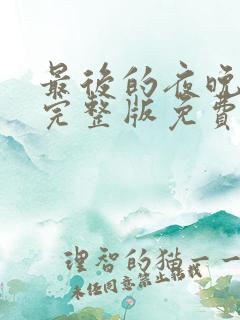 最後的夜晚
完整版免費
理智的猫一一
未任同意禁止转载